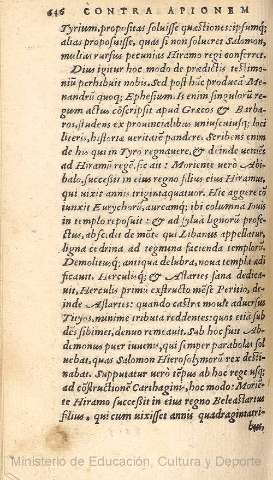 646 CONTRA APIONEM
Tyrium, propositas soluisse quæstiones: ipsumq;
alias proposuisse, quas si non solueret Salomon,
multas rursus pecunias Hiramo regi conferret.
Dius igitur hoc modo de prædictis testimo-
niũ perhibuit nobis. Sed post hũc producã Me-
nandrũ quoq; Ephesium. Is enim singulorũ re-
gum actus cõscripsit apud Græcos & Barba-
ros, studens ex prouincialibus uniuscuiusq; loci
literis, historiæ ueritatẽ pandere. Scribens enim
de his qui in Tyro regnauere, & deinde ueniẽs
ad Hiramũ regẽ, sic ait: Moriente uerò Abi-
balo, successit in eius regno filius eius Hiramus,
qui uixit annis trigintaquatuor. Hic aggere cõ
iunxit Eurychorũ, aureamq; ibi columna Iouis
in templo reposuit: & ad sylua lignorũ profe-
ctus, abscidit de mõte qui Libanus appellatur,
ligna cedrina ad tegmina facienda templorũ.
Demolitusq; antiqua delubra, noua templa ædi
ficauit. Herculisq; & Astartes fana dedica-
uit, Herculi primũ exstructo mẽse Peritio, de-
inde Astartes: quando castra mouit aduersus
Tityos, nũnime tributa reddentes: quos etiã sub
dẽs sibimet, denuo remeauit. Sub hoc fuit Ab-
demonus puer iuuenis, qui semper parabolas sol
uebat, quas Salomon Hierosolymorũ rex desti-
nabat. Supputatur uerò tẽpus ab hoc rege usq;
ad cõstructionẽ Carthaginis, hoc modo: Moriẽ-
te Hiramo successit in eius regno Beleastartus
filius, qui cum uixisset annis quadragintatri-
bus,
Ministerio de Educación, Cultura y Deporte